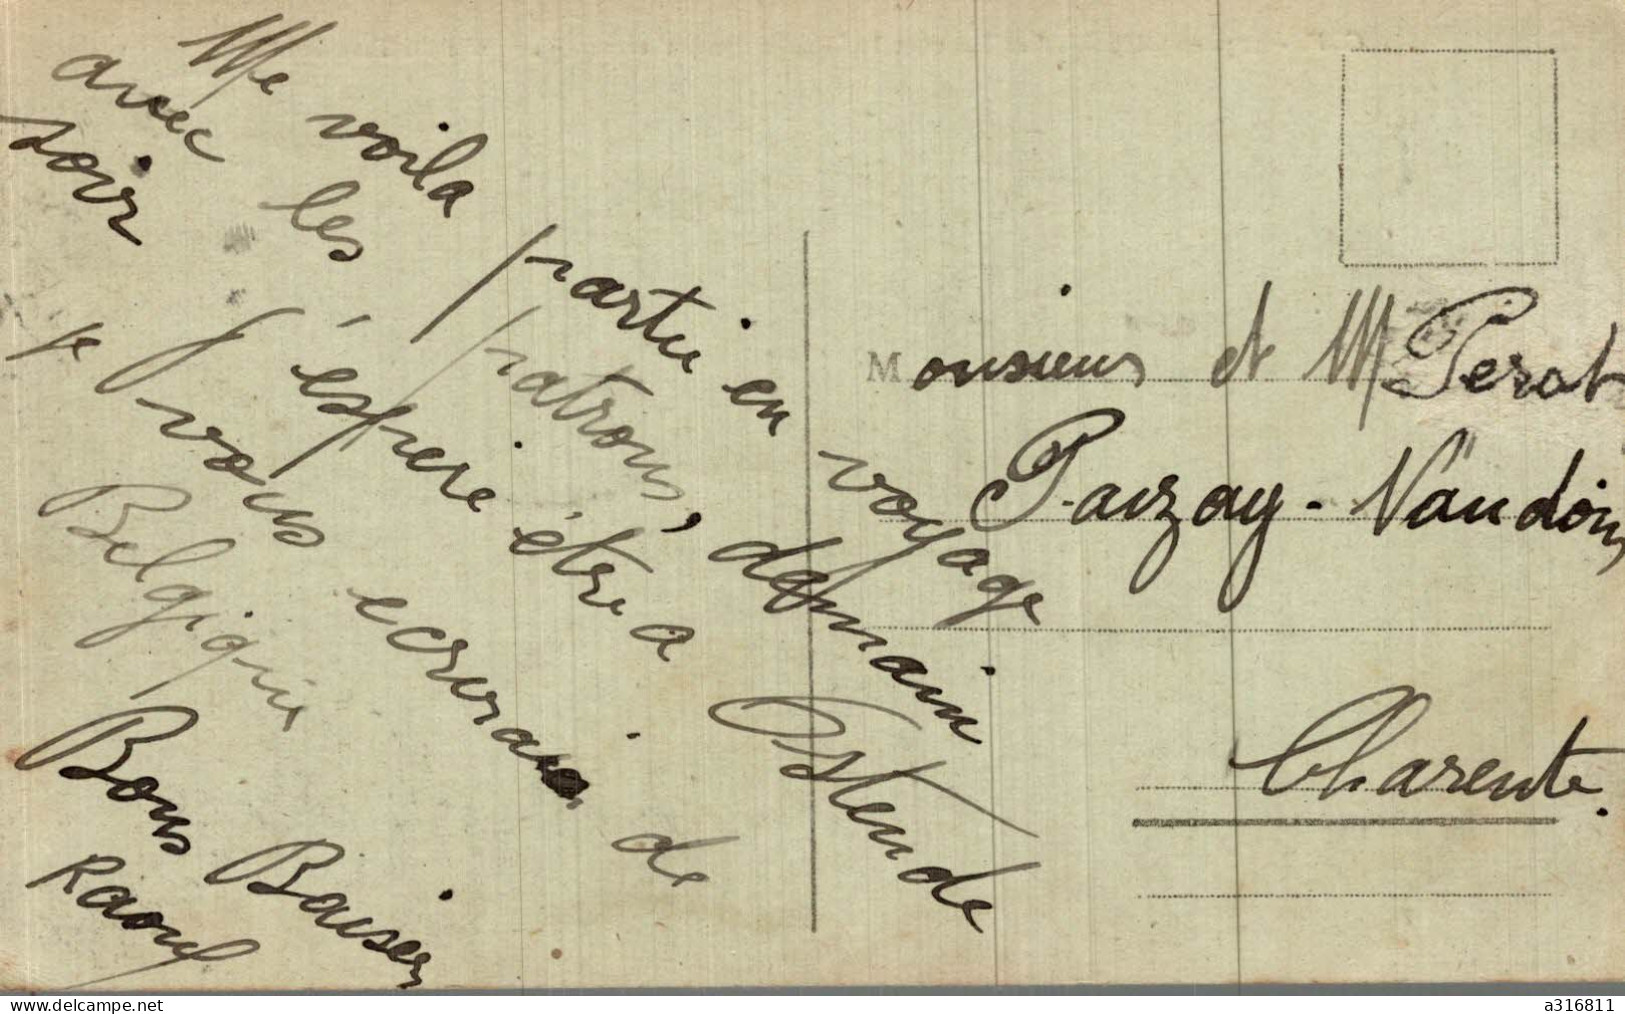 Me voila partie en voyage
avec les patrons, demain
soir j'espere être a Ostende
je vous ecrirai de
Belgique
Bons Baisers
Raoul
Monsieur et M Perat
Paizay-Naudouin
Charente.
www.delcampe.net
a316811